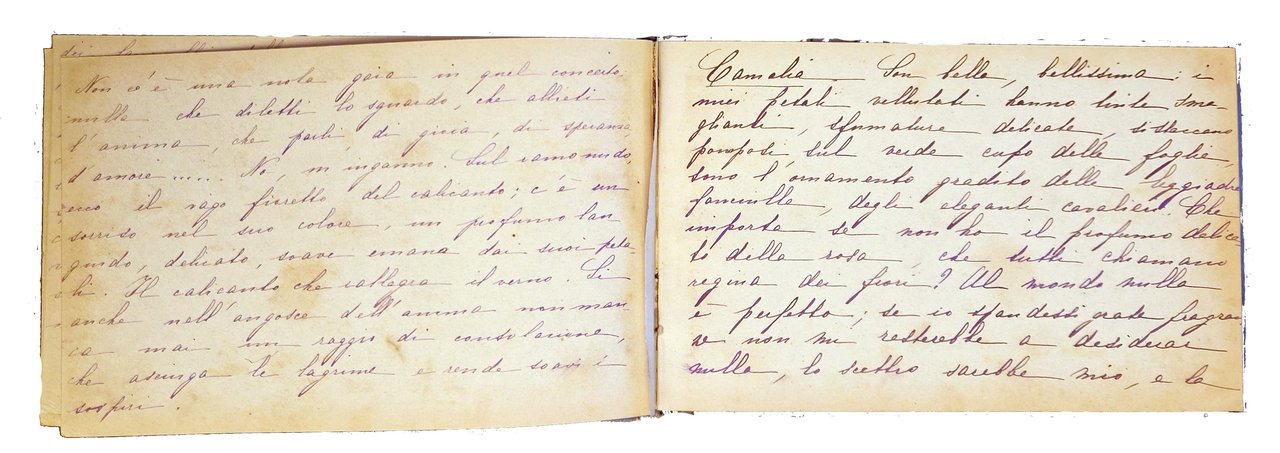 Non c'è una nota gaia in quel concerto,
nulla che diletti lo sguardo, che allieti
l'anima, che parli di gioia, di speranza,
d'amore ..... No, m'inganno. Sul ramo nudo,
ecco il vago fioretto del calicanto; c'è un
sorriso nel suo colore, un profumo lan
guido, delicato, soave emana dai suoi peta
li. Il calicanto che rallegra il verno. Sì
anche nell'angosce dell'anima non man
ca mai un raggio di consolazione,
che asciuga le lagrime e rende soavi i
sospiri.
Camelia — Son bella, bellissima: i
miei petali vellutati hanno tinte sma
glianti, sfumature delicate, si staccano
pomposi sul verde cupo delle foglie,
sono l'ornamento gradito delle leggiadre
fanciulle, degli eleganti cavalieri. Che
importa se non ho il profumo delica
to della rosa, che tutti chiamano
regina dei fiori? Al mondo nulla
è perfetto; se io spandessi grate fragran
ze non mi resterebbe a desiderar
nulla, lo scettro sarebbe mio, e la